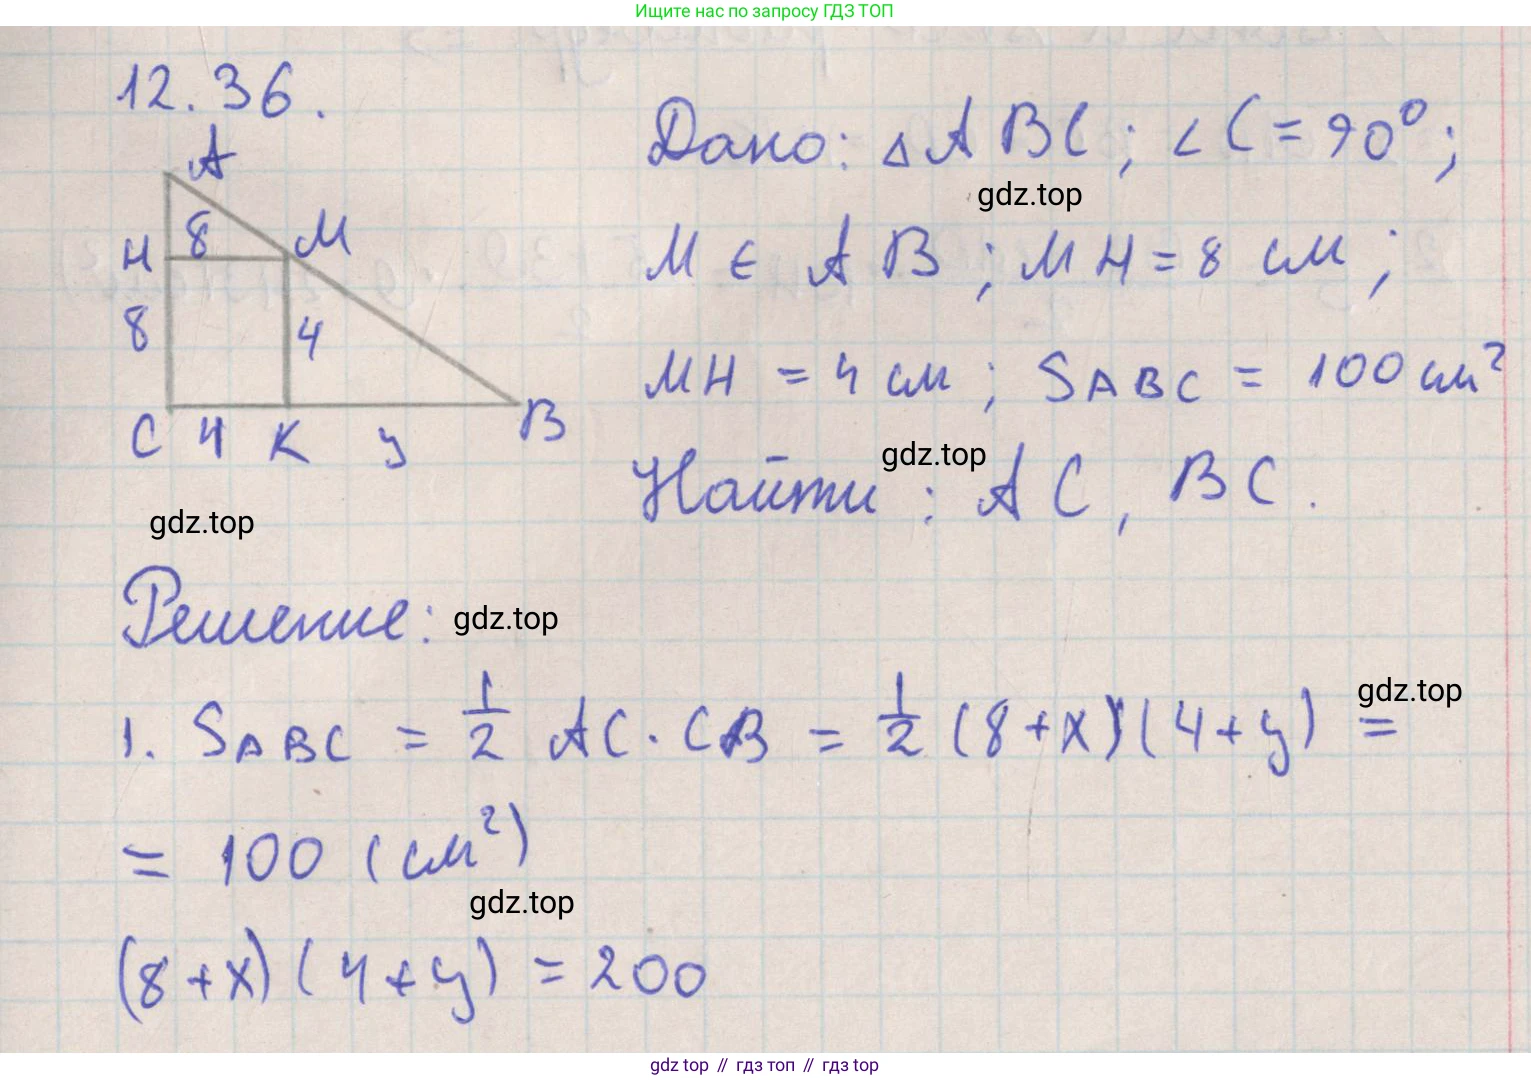 Ищите нас по запросу ГДЗ ТОП
12.36.
A
H 8 M
8 4
C 4 K y B
Дано: △ABC; ∠C = 90°;
gdz.top
M ∈ AB; MH = 8 см;
MH = 4 см; SABC = 100 см²
gdz.top
Найти: AC, BC.
gdz.top
Решение:
gdz.top
gdz.top
1. SABC = 1/2 AC · CB = 1/2 (8+x)(4+y) =
= 100 (см²)
gdz.top
(8+x)(4+y) = 200
gdz top // гдз топ // гдз top